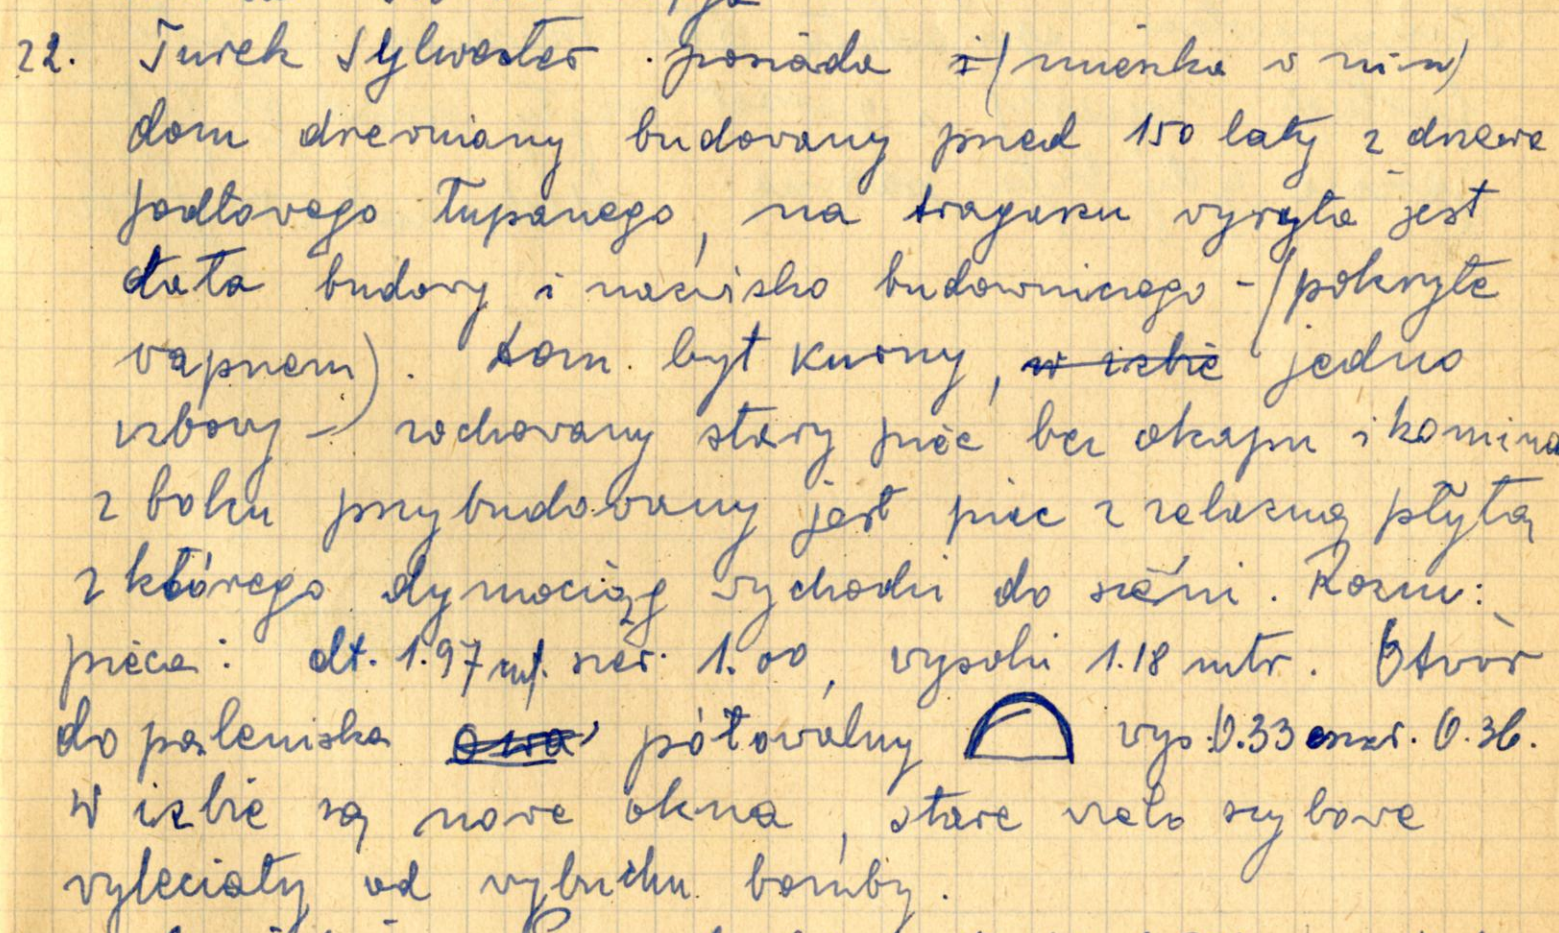 22. Turek Sylwester posiada i (mieszka w nim)
dom drewniany budowany przed 150 laty z drzewa
jodłowego łupanego, na tragarzu wyryta jest
data budowy i nazwisko budowniczego - (pokryte
wapnem). dom był kurny, w izbie jedno
izbowy - zachowany stary piec bez okapu i komina
z boku przybudowany jest piec z żelazną płytą
z którego dymociąg wychodzi do sieni. Rozm:
pieca: dł. 1.97 mt. szer. 1.00, wysoki 1.18 mtr. Otwór
do paleniska owa półowalny wys. 0.33 szer. 0.36.
W izbie są nowe okna, stare wielo szybowe
wyleciały od wybuchu bomby.